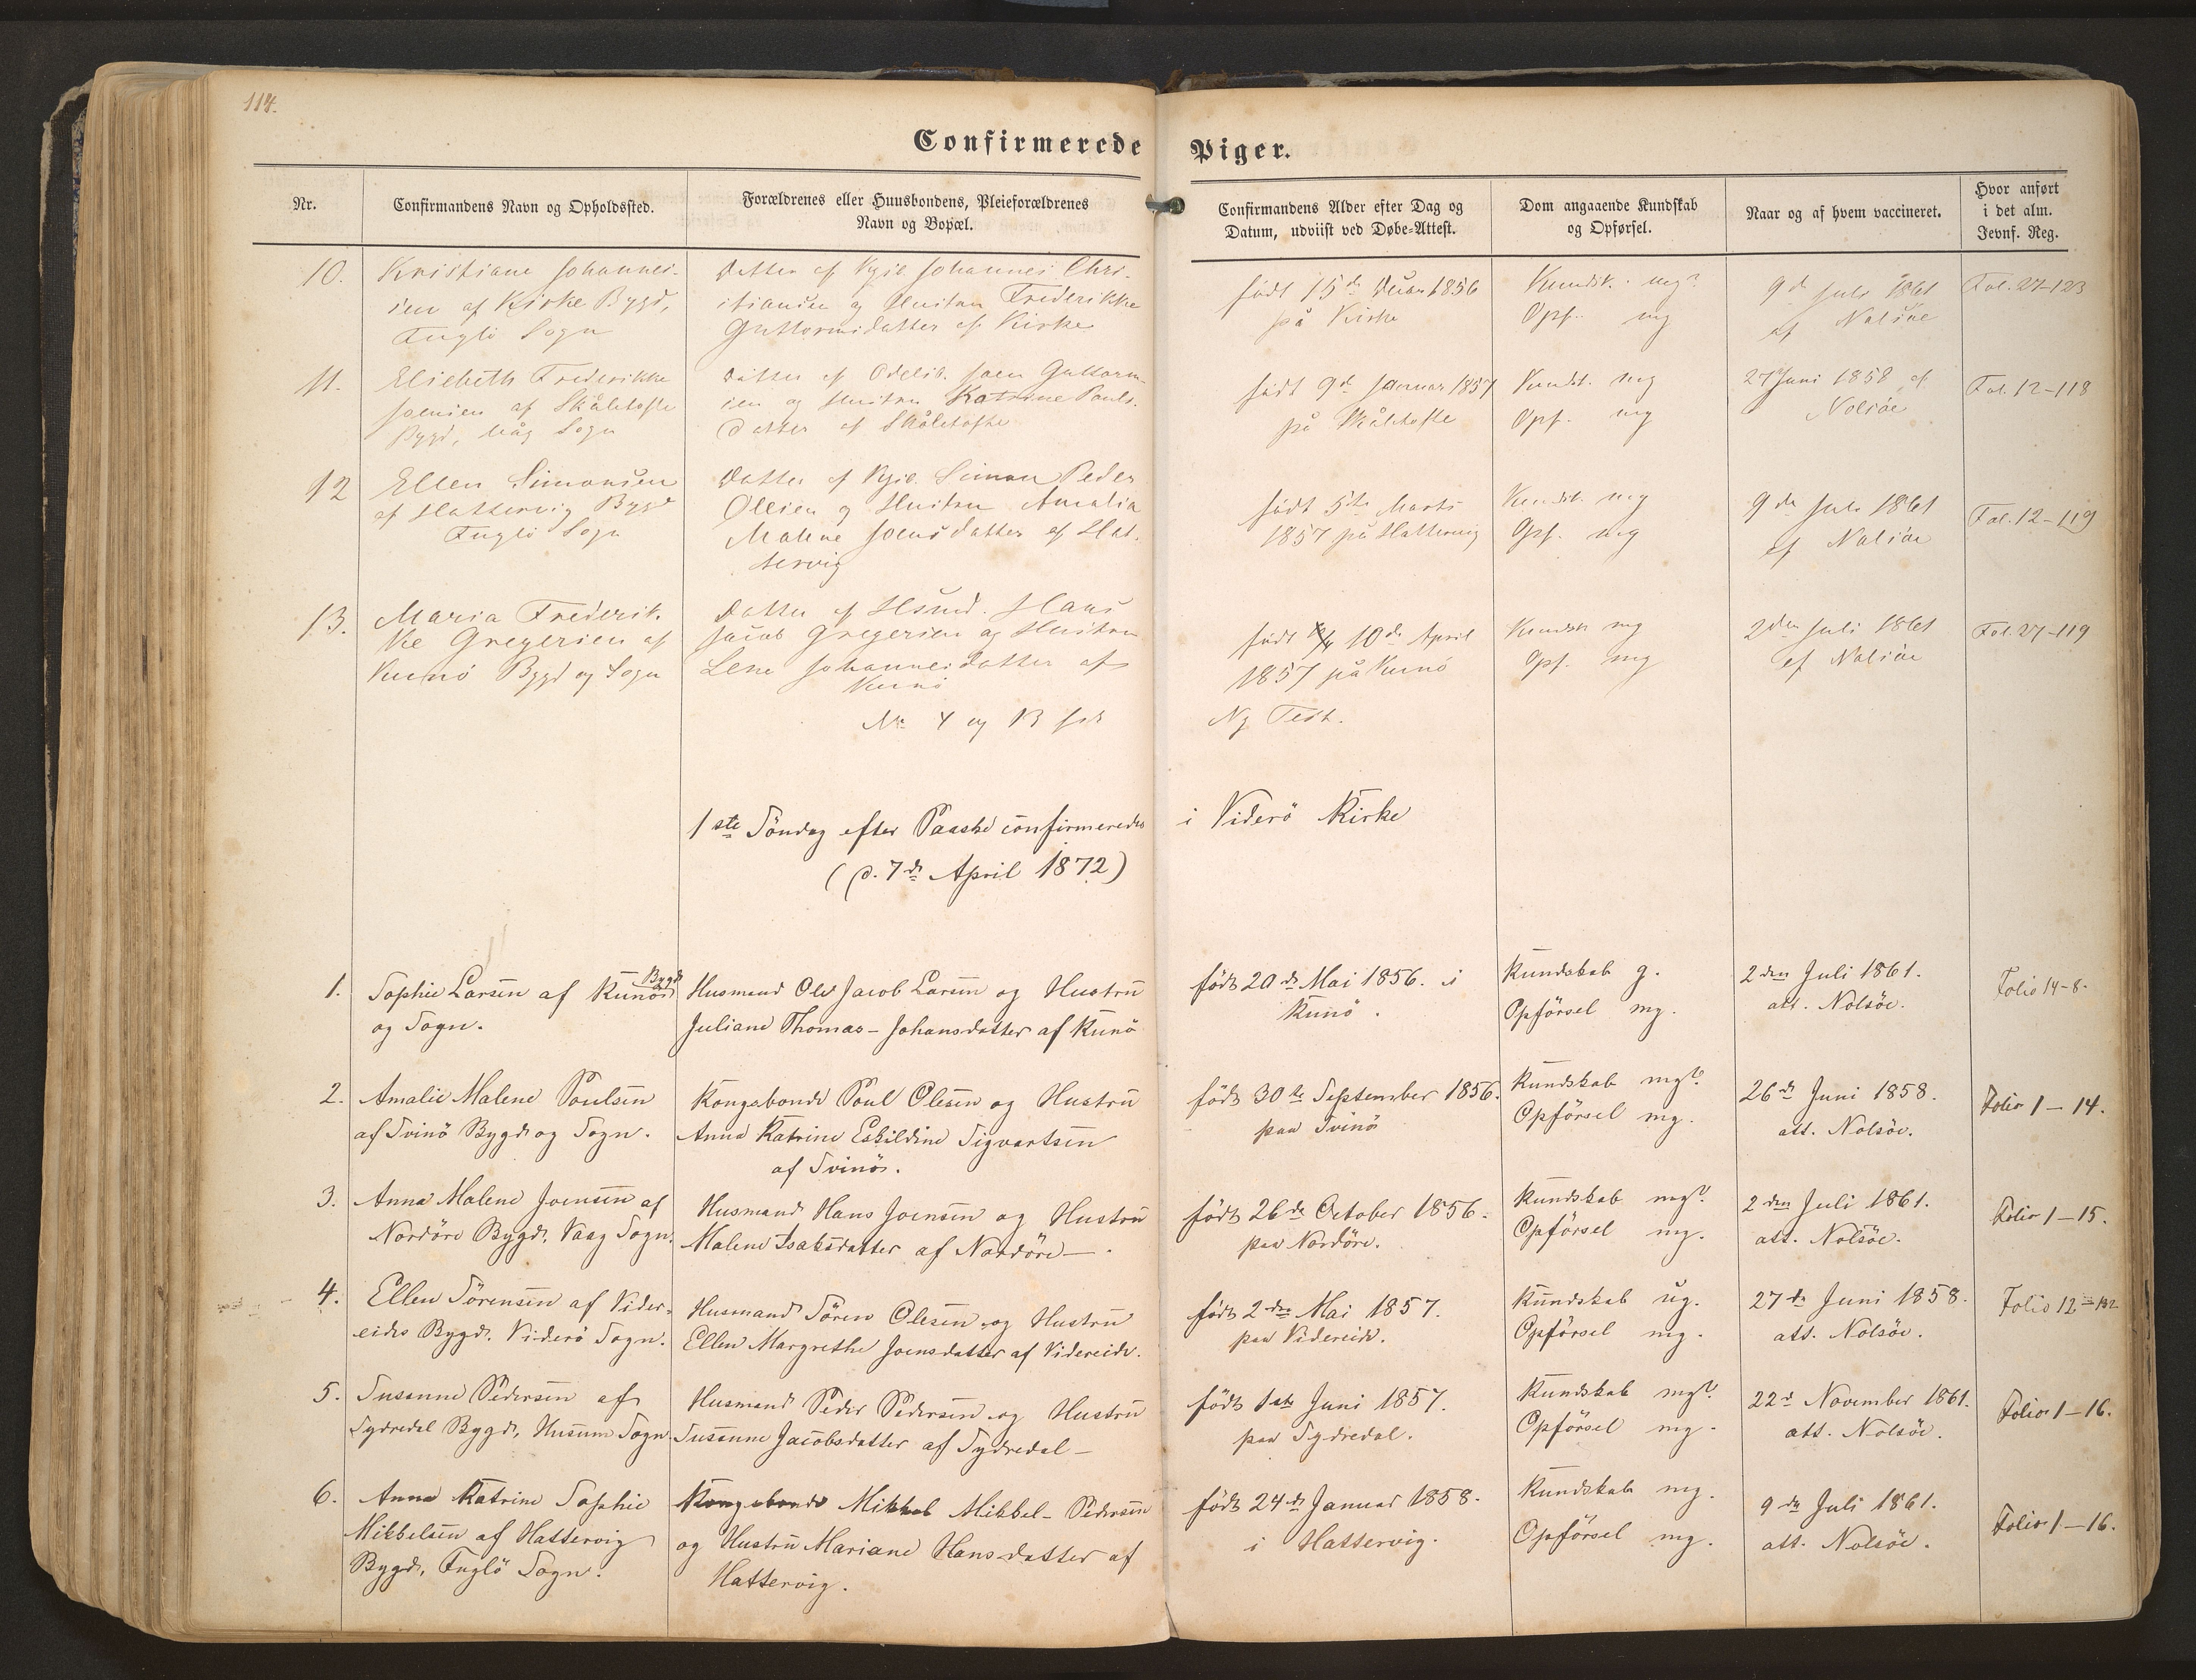 114.
Confirmerede Piger.
Nr.
Confirmandens Navn og Opholdssted.
Forældrenes eller Huusbondens, Pleieforældrenes
Navn og Bopæl.
Confirmandens Alder efter Dag og
Datum, udviist ved Døbe-Attest.
Dom angaaende Kundskab
og Opførsel.
Naar og af hvem vaccineret.
Hvor anført
i det alm.
Jevnf. Reg.
10.
Kristiane Johannes-
sen af Kirke Bygd,
Fuglö Sogn
Datter af Kgsb. Johannes Chri-
stiansen og Hustru Frederikke
Guttormsdatter af Kirke
født 15de 1856
på Kirke
Kundsk. mg?
Opf. mg
9d Juli 1861
af Nolsöe
Fol. 27-123
11.
Elisebeth Frederikke
Joensen af Skåletofte
Bygd, Våg Sogn
Datter af Odelsb. Joen Guttorm-
sen og Hustru Katrine Pouls-
datter af Skåletofte
født 9d Januar 1857
på Skåletofte
Kundsk. mg
Opf. mg
27 Juni 1858 af
Nolsöe
Fol. 12-118
12
Ellen Simonsen
af Hattervig Bygd
Fuglö Sogn
Datter af Kgsb. Simon Peder
Olsen og Hustru Amalia
Malene Joensdatter af Hat-
tervig
født 5te Marts
1857 på Hattervig
Kundsk. mg
Opf. mg
9de Juli 1861
af Nolsöe
Fol. 12-119
13.
Maria Frederik-
ke Gregersen af
Kunö Bygd og Sogn
Datter af Husmd. Hans
Jacob Gregersen og Hustru
Lene Johannesdatter af
Kunö
født 10de April
1857 på Kunö
Kundsk mg
Opf. mg
2den Juli 1861
af Nolsöe
Fol. 27-119
Nr. 4 og 13 fik Ny Test.
1ste Söndag efter Paaske confirmeredes i Viderö Kirke
(d. 7de April 1872)
1.
Sophie Larsen af Kunös Bygd
og Sogn.
Husmand Ole Jacob Larsen og Hustru
Juliane Thomas-Johansdatter af Kunö
født 20de Mai 1856. i
Kunö.
Kundskab g.
Opförsel mg.
2den Juli 1861.
att. Nolsöe.
Folio 14-8.
2.
Amalie Malene Poulsen
af Svinö Bygd og Sogn.
Kongsbonde Poul Olesen og Hustru
Anna Katrine Eskildine Sigvartsen
af Svinö.
født 30te September 1856.
paa Svinö
Kundskab mg?.
Opförsel mg.
26de Juni 1858.
att. Nolsöe.
Folio 1-14.
3.
Anna Malene Joensen af
Nordöre Bygd, Vaag Sogn.
Husmand Hans Joensen og Hustru
Malene Isaksdatter af Nordöre-.
født 26de October 1856.
paa Nordöre.
Kundskab mg?.
Opförsel mg.
2den Juli 1861.
att. Nolsöe.
Folio 1-15.
4.
Ellen Sörensen af Vider-
eides Bygd, Viderö Sogn.
Husmand Sören Olesen og Hustru
Ellen Margrethe Joensdatter af Videreide.
født 2den Mai 1857.
paa Videreide.
Kundskab ug.
Opförsel mg.
27de Juni 1858.
att. Nolsöe.
Folio 12-132
5.
Susanne Pedersen af
Sydredal Bygd, Husum Sogn
Husmand Peder Pedersen og Hustru
Susanne Jacobsdatter af Sydredal-
født 1ste Juni 1857.
paa Sydredal.
Kundskab mg?.
Opförsel mg.
22de November 1861.
att. Nolsöe.
Folio 1-16.
6.
Anna Katrine Sophie
Mikkelsen af Hattervig
Bygd, Fuglö Sogn.
Kongsbonde Mikkel Mikkel-Pedersen
og Hustru Mariane Hansdatter af
Hattervig.
født 24de Januar 1858.
i Hattervig.
Kundskab mg.
Opförsel mg.
9de Juli 1861.
att. Nolsöe.
Folio 1-16.